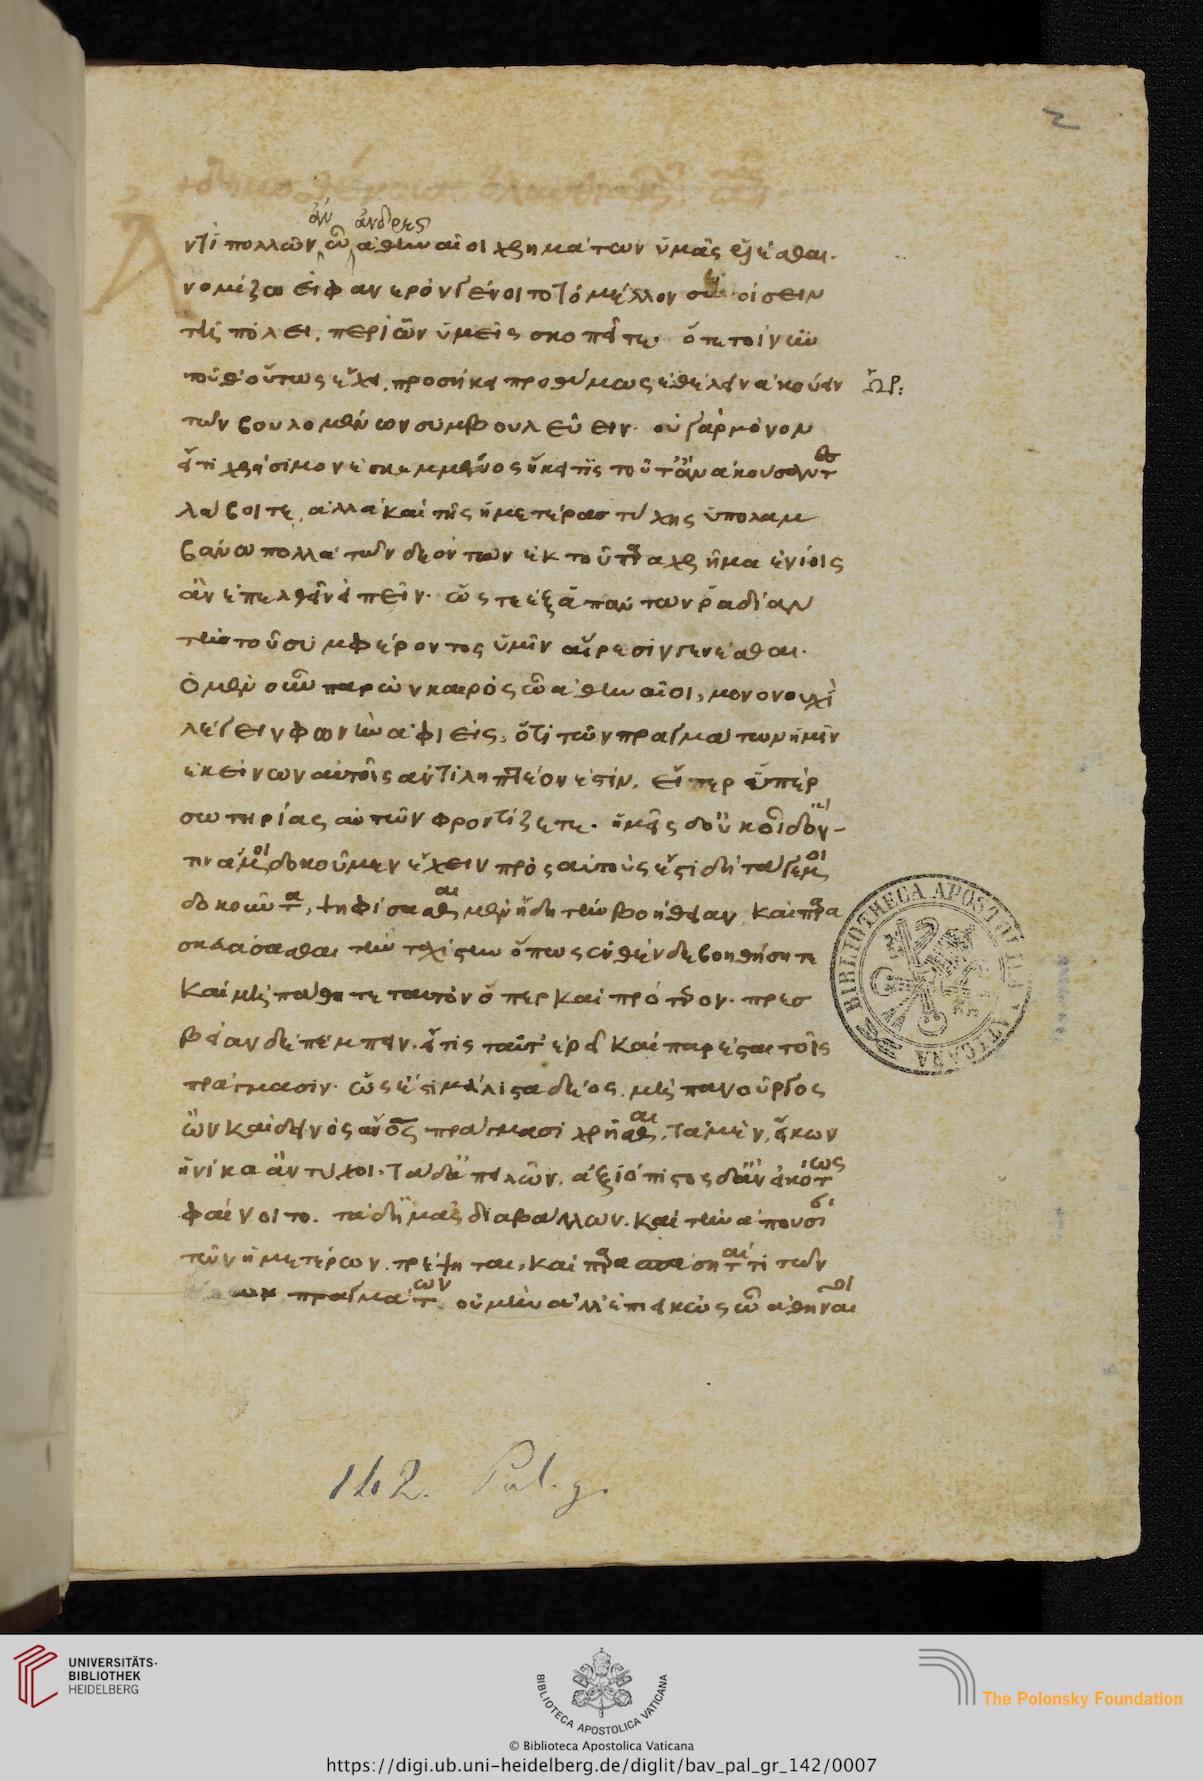 2
ἂν ἄνδρες
Ἀντὶ πολλῶν ὦ ἀθηναῖοι χρημάτων ὑμᾶς ἑλέσθαι·
νομίζω εἰ φανερὸν γένοιτο τὸ μέλλον συνοίσειν
τῆ πόλει, περὶ ὧν ὑμεῖς σκοπεῖτε· ὅτε τοίνυν
τοῦθ' οὕτως ἔχει, προσήκει προθύμως ἐθέλειν ἀκούειν
ὡρ:
τῶν βουλομένων συμβουλεύειν· οὐ γὰρ μόνον
εἴ τι χρήσιμον ἐσκεμμένος ἥκει τίς τοῦτ' ἂν ἀκούσαντες
λάβοιτε, ἀλλὰ καὶ τῆς ἡμετέρας τύχης ὑπολαμ
βάνω πολλὰ τῶν δεόντων ἐκ τοῦ παραχρῆμα ἐνίοις
ἂν ἐπελθεῖν εἰπεῖν· ὥστε ἐξ ἁπάντων ῥαδίαν
τὴν τοῦ συμφέροντος ὑμῖν αἵρεσιν γενέσθαι·
Ὁ μὲν οὖν παρὼν καιρὸς ὦ ἀθηναῖοι, μονονουχὶ
λέγει φωνὴν ἀφιείς, ὅτι τῶν πραγμάτων ἡμῖν
ἐκείνων αὐτοῖς ἀντιληπτέον ἐστίν, εἴπερ ὑπὲρ
σωτηρίας αὐτῶν φροντίζετε· ἡμεῖς δ' οὐκ οἶδ' ὅν-
τινά μοι δοκοῦμεν ἔχειν πρὸς αὐτούς ἔστι δὴ τά γ' ἐμοὶ
δοκοῦντα, ψηφίσασθαι μὲν ἤδη τὴν βοήθειαν, καὶ παρα
σκευάσασθαι τὴν ταχίστην ὅπως ἐνθένδε βοηθήσητε
καὶ μὴ πάθητε ταυτὸν ὅπερ καὶ πρότερον· πρεσ
βείαν δὲ πέμπειν, ἥτις ταῦτ' ἐρεῖ καὶ παρέσται τοῖς
πράγμασιν· ὡς ἔστι μάλιστα δέος, μὴ πανοῦργος
ὢν καὶ δεινὸς ἄνθρωπος πράγμασι χρῆσθαι, τὰ μὲν, εἴκων
ἡνίκα ἂν τύχοι· τὰ δ' ἀπειλῶν, ἀξιόπιστος δ' ἂν εἰκότως
φαίνοιτο, τὰ δ' ἡμᾶς διαβάλλων, καὶ τὴν ἀπουσί
τῶν ἡμετέρων, τρέψηται, καὶ παρασπάσηταί τι τῶν
ὅλων πραγμάτων, οὐ μὴν ἀλλ' ἐπιεικῶς ὦ ἀθηναῖοι
BIBLIOTHECA APOSTOLICA VATICANA
142. Pal. g.
UNIVERSITÄTS-
BIBLIOTHEK
HEIDELBERG
BIBLIOTECA APOSTOLICA VATICANA
The Polonsky Foundation
© Biblioteca Apostolica Vaticana
https://digi.ub.uni-heidelberg.de/diglit/bav_pal_gr_142/0007